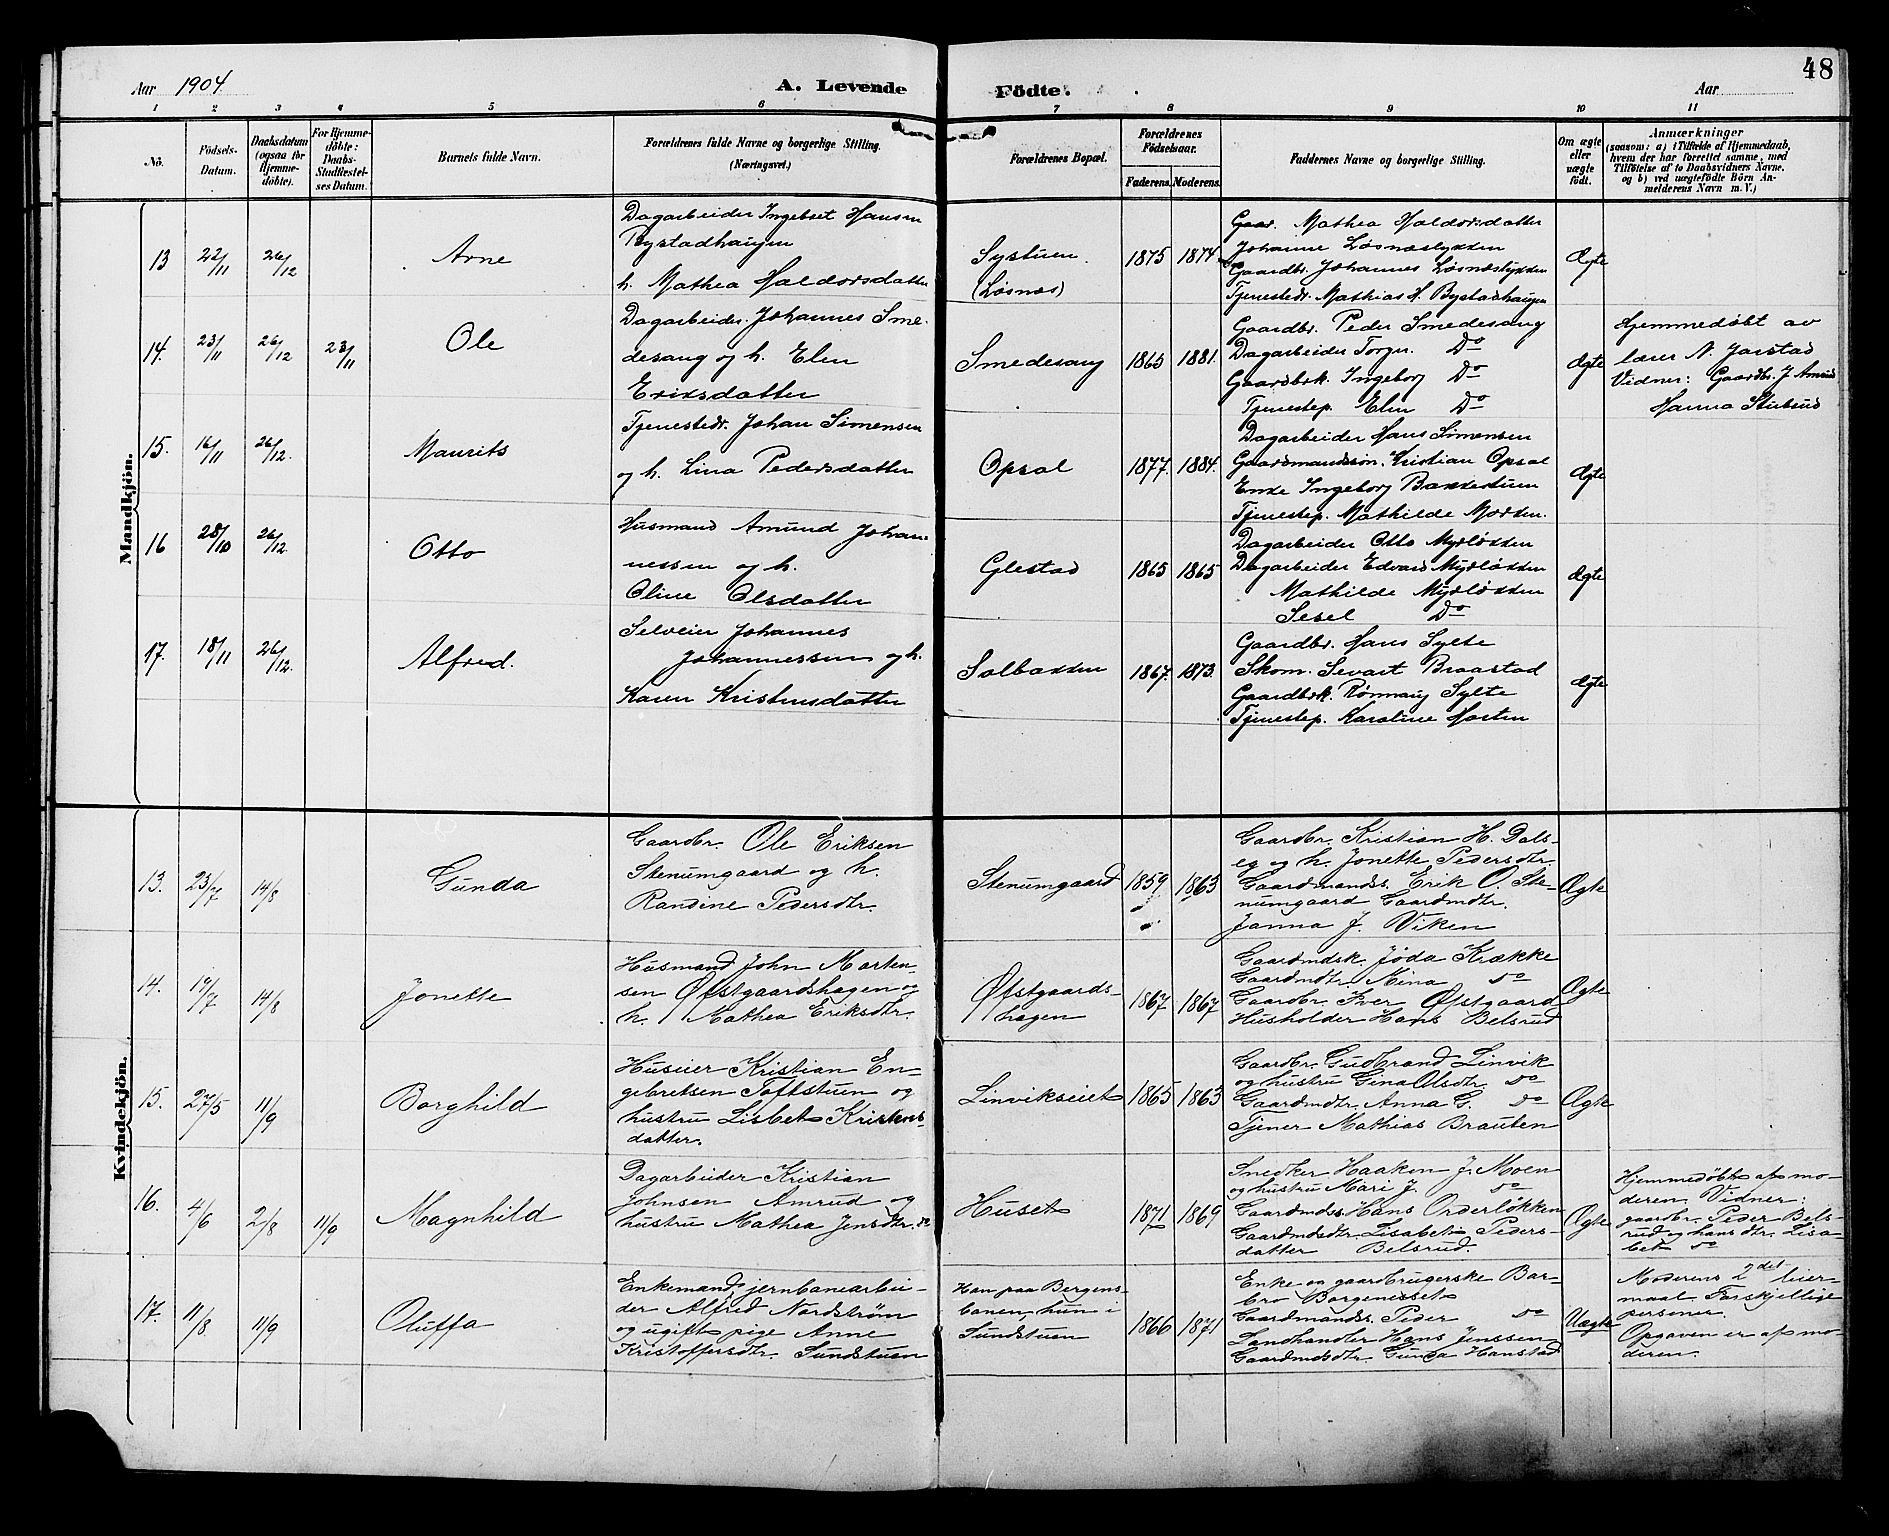 Aar 1904
A. Levende
Fødte.
Aar
48
1 2 3 4 5 6 7 8 9 10 11
No.
Fødsels-Datum.
Daabsdatum (ogsaa for Hjemmedøbte).
For Hjemmedøbte: Daabs-Stadfæstelses Datum.
Barnets fulde Navn.
Forældrenes fulde Navne og borgerlige Stilling. (Næringsvei.)
Forældrenes Bopæl.
Forældrenes Fødselsaar.
Faderens. Moderens.
Faddernes Navne og borgerlige Stilling.
Om ægte eller uægte født.
Anmærkninger (saasom: a) i Tilfælde af Hjemmedaab, hvem der har forrettet samme, med Tilføielse af to Daabsvidners Navne. og b) ved uægtefødte Børn Anmelderens Navn m. V.)
Mandkjön.
13 22/11 26/12
Arne
Dagarbeider Ingebret Hansen
Bystadhaugen
h. Mathea Haldorsdatter
Systuen.
(Løsnæs)
1875 1874
Gaar. Mathea Haldorsdatter
Johanne Løsnæslykken
Gaardbr. Johannes Løsnæslykken
Tjenestedr. Mathias H. Bystadhaugen
Ægte
14. 23/11 26/12 23/11
Ole
Dagarbeider. Johannes Sme-
desang og h. Elen
Eriksdatter
Smedesang
1865 1881.
Gaardbr. Peder Smedesang
Dagarbeider Torger. Do
Gaardbrk. Ingeborg Do
Tjenestep. Elen Do
Ægte
Hjemmedøbt av
lærer N. Jarstad
Vidner: Gaardbr. J Amrud
Hanna Stubrud
15. 16/11 26/12.
Maurits
Tjenestedr. Johan Simensen
og h. Lina Pedersdatter
Opsal
1877. 1884.
Dagarbeider Hans Simensen
Gaardmandssøn. Kristian Opsal
Enke Ingeborg Bakkestuen
Tjenestep. Mathilde Morken.
Ægte
16 28/10 26/12.
Otto
Husmand Amund Johan-
nessen og h.
Oline Olsdatter
Glestad
1865 1865
Dagarbeider Otto Myrløkken
Dagarbeider Edvard Myrløkken
Mathilde Myrløkken
Sesel Do
Ægte
17. 18/11 26/12.
Alfred.
Selveier Johannes
Johannessen og h.
Karen Kristensdatter
Solbakken
1867. 1873.
Gaardbr. Hans Sylte
Skom. Sevart Braastad
Gaardbrk. Rønnaug Sylte
Tjenestep. Karoline Horten
Ægte
Kvindekjön.
13. 23/7 14/8
Gunda
Gaardbr. Ole Eriksen
Stenumgaard og h.
Randine Pedersdtr.
Stenumgaard
1859 1863
Gaardbr. Kristian H. Dals-
eg og h. Jonette Pedersdtr.
Gaardmandss. Erik O. Ste-
numgaard Gaardmdtr.
Janna J. Viken
Ægte
14. 19/7 14/8
Jonette
Husmand John Morten-
sen Øfstgaardshagen og
h. Mathea Eriksdtr.
Øfstgaards-
hagen
1867 1867
Gaardmdsk. Jøda Krække
Gaardmdtr Mina do
Gaardbr. Iver Øfstgaard
Husholder Hans Belsrud
Ægte
15. 27/5 11/9
Borghild
Huseier Kristian En-
gebretsen Toftstuen og
hustru Lisbet Kristens-
datter.
Linvikseiet
1865 1863
Gaardbr. Gudbrand Linvik
og hustru Gina Olsdtr. do
Gaardmdtr. Anna G. do
Tjener Mathias Brauten
Ægte
16. 4/6 2/8 11/9
Magnhild
Dagarbeider Kristian
Johnsen Amrud og
hustru Mathea Jensdtr. do
Huset
1871 1869
Snedker Haaken J. Moen
og hustru Mari J. do
Gaardmdss. Hans Onderløkken
Gaardmdsdtr. Lisabet Peders-
datter Belsrud.
Ægte
Hjemmedøbt af mo-
deren. Vidner:
gaardbr. Peder Bels-
rud og hans dtr. Lisa-
bet do
17. 11/8 11/9
Oluffa
Enkemand, jernbanearbei-
der Alfred Nordstrøm
og ugift pige Anne
Kristoffersdtr. Sundstuen
Han paa Bergens-
banen, hun i
Sundstuen
1866 1871
Enke og gaardbrugerske Bar-
bro Borgeneset
Gaardmandss. Peder do
Landhandler Hans Jenssen
Gaardmdsdtr. Gunda Hanstad
Uægte
Moderens 2det leier-
maal. Forskjellige
personer.
Opgaven er af mo-
deren.